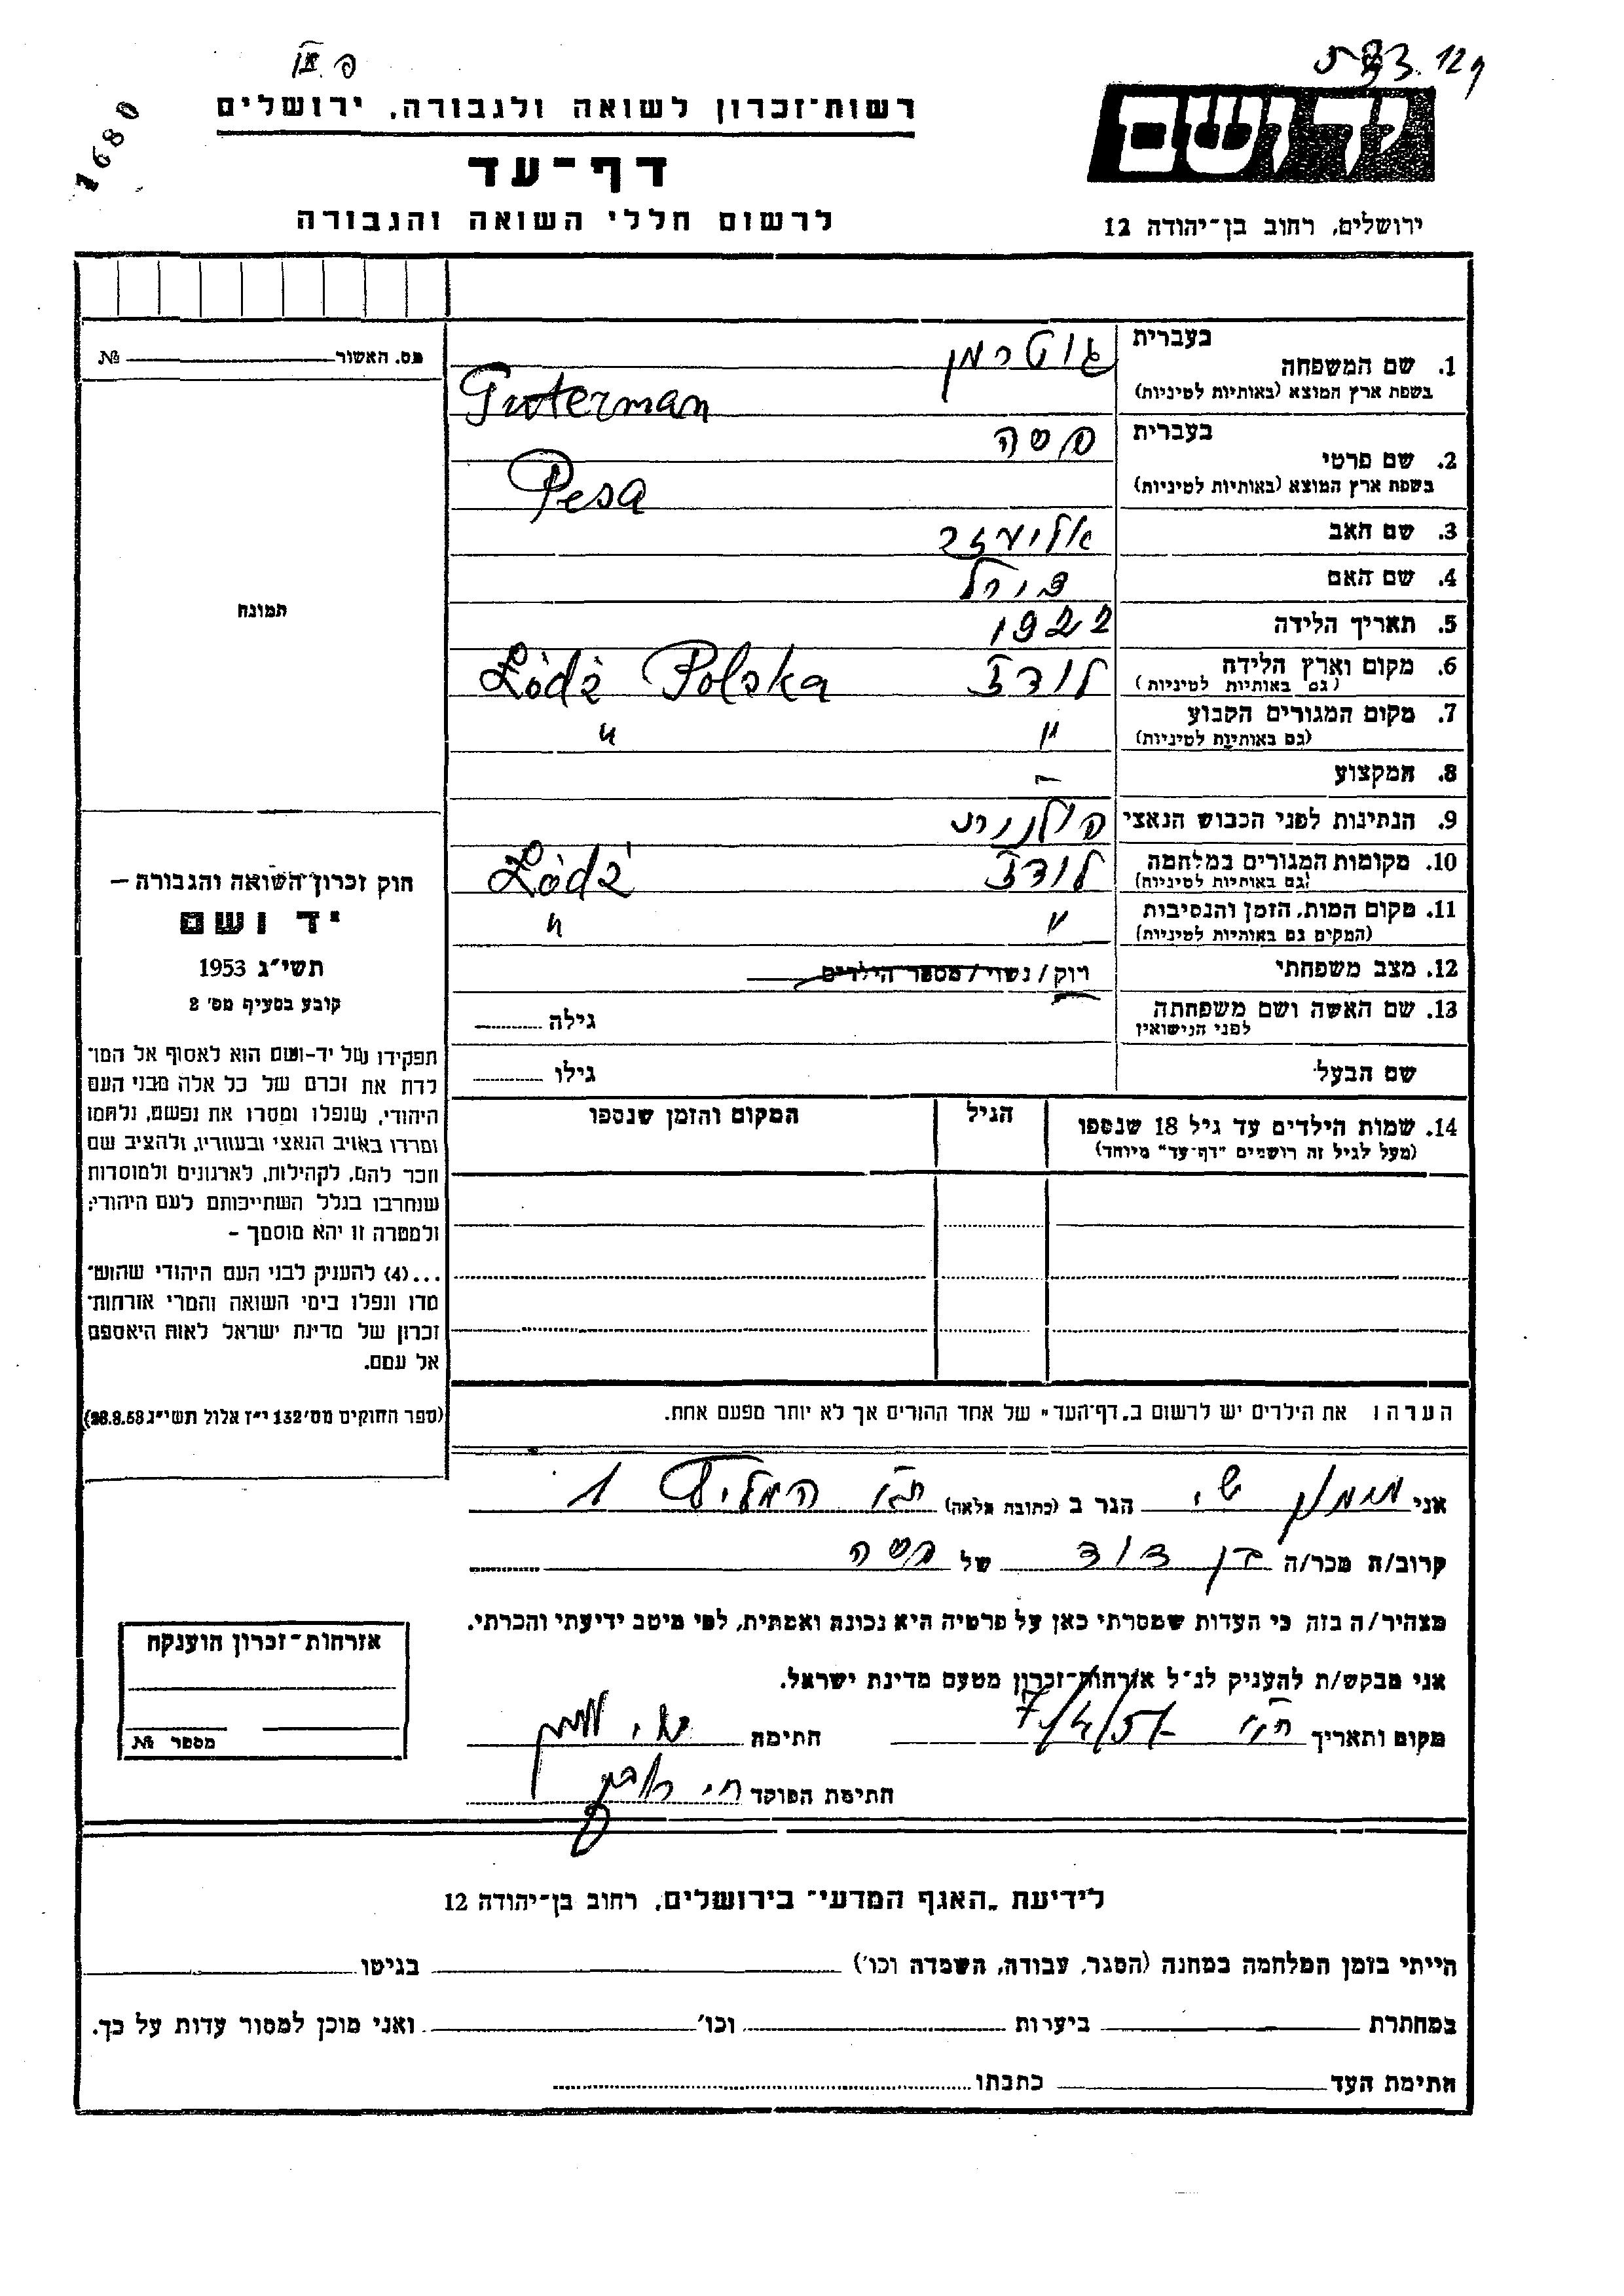 רשות־זכרון לשואה ולגבורה, ירושלים
1680
דף־עד
לרשום חללי השואה והגבורה
יד ושם
ירושלים, רחוב בן־יהודה 12
מס. האשור №
1. שם המשפחה
בעברית גוטרמן
בשפת ארץ המוצא (באותיות לטיניות) Guterman
2. שם פרטי
בעברית פסה
בשפת ארץ המוצא (באותיות לטיניות) Pesa
3. שם האב אליעזר
4. שם האם
5. תאריך הלידה 1922
6. מקום וארץ הלידה לודז Łódź Polska
(גם באותיות לטיניות)
7. מקום המגורים הקבוע " "
(גם באותיות לטיניות)
8. המקצוע –
9. הנתינות לפני הכבוש הנאצי פולנית
10. מקומות המגורים במלחמה לודז Łódź
(גם באותיות לטיניות)
11. מקום המות, הזמן והנסיבות " "
(המקים גם באותיות לטיניות)
12. מצב משפחתי רוק/נשוי/מספר הילדים
13. שם האשה ושם משפחתה גילה
לפני הנישואין
שם הבעל גילו
14. שמות הילדים עד גיל 18 שנספו
(מעל לגיל זה רושמים "דף־עד" מיוחד)
הגיל
המקום והזמן שנספו
הערה ו את הילדים יש לרשום ב„דף־העד" של אחד ההורים אך לא יותר מפעם אחת.
תמונה
חוק זכרון השואה והגבורה –
יד ושם
תשי״ג 1953
קובע בסעיף מס׳ 2
תפקידו של יד-ושם הוא לאסוף אל המו־
לדת את זכרם של כל אלה מבני העם
היהודי, שנפלו ומסרו את נפשם, נלחמו
ומרדו באויב הנאצי ובעוזריו, ולהציב שם
וזכר להם, לקהילות, לארגונים ולמוסדות
שנחרבו בגלל השתייכותם לעם היהודי;
ולמטרה זו יהא מוסמך –
...(4) להעניק לבני העם היהודי שהוש־
מדו ונפלו בימי השואה והמרי אזרחות־
זכרון של מדינת ישראל לאות היאספם
אל עמם.
(ספר החוקים מס׳ 132 י״ז אלול תשי״ג 28.8.53)
אני מימון שי הגר ב (כתובת מלאה) ת״א המליץ 1
קרוב/ה מכר/ה בן דוד של פסה
מצהיר/ה בזה כי העדות שמסרתי כאן על פרטיה היא נכונה ואמתית, לפי מיטב ידיעתי והכרתי.
אני מבקש/ת להעניק לנ״ל אזרחות־זכרון מטעם מדינת ישראל.
מקום ותאריך ת״א חתימה
חתימת הפוקד
אזרחות־זכרון הוענקה
מספר №
לידיעת „האגף המדעי" בירושלים, רחוב בן־יהודה 12
הייתי בזמן המלחמה במחנה (הסגר, עבודה, השמדה וכו׳) בגיטו
במחתרת ביערות וכו׳ ואני מוכן למסור עדות על כך.
חתימת העד כתבתו